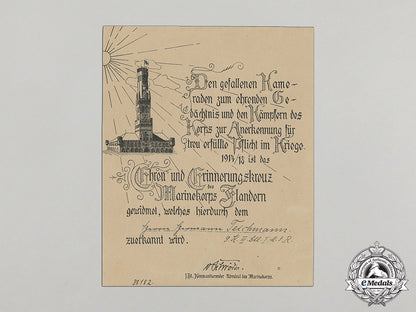 Den gefallenen Kame-
raden zum ehrenden Ge-
dächtnis und den Kämpfern des
Korps zur Anerkennung für
treu erfüllte Pflicht im Kriege.
1914/18 ist das
Ehren und Erinnerungskreuz
des
Marinekorps Flandern
gewidmet, welches hierdurch dem
Herrn Hermann Teichmann
zuerkannt wird.
Kommandierender Admiral des Marinekorps.
eMedals